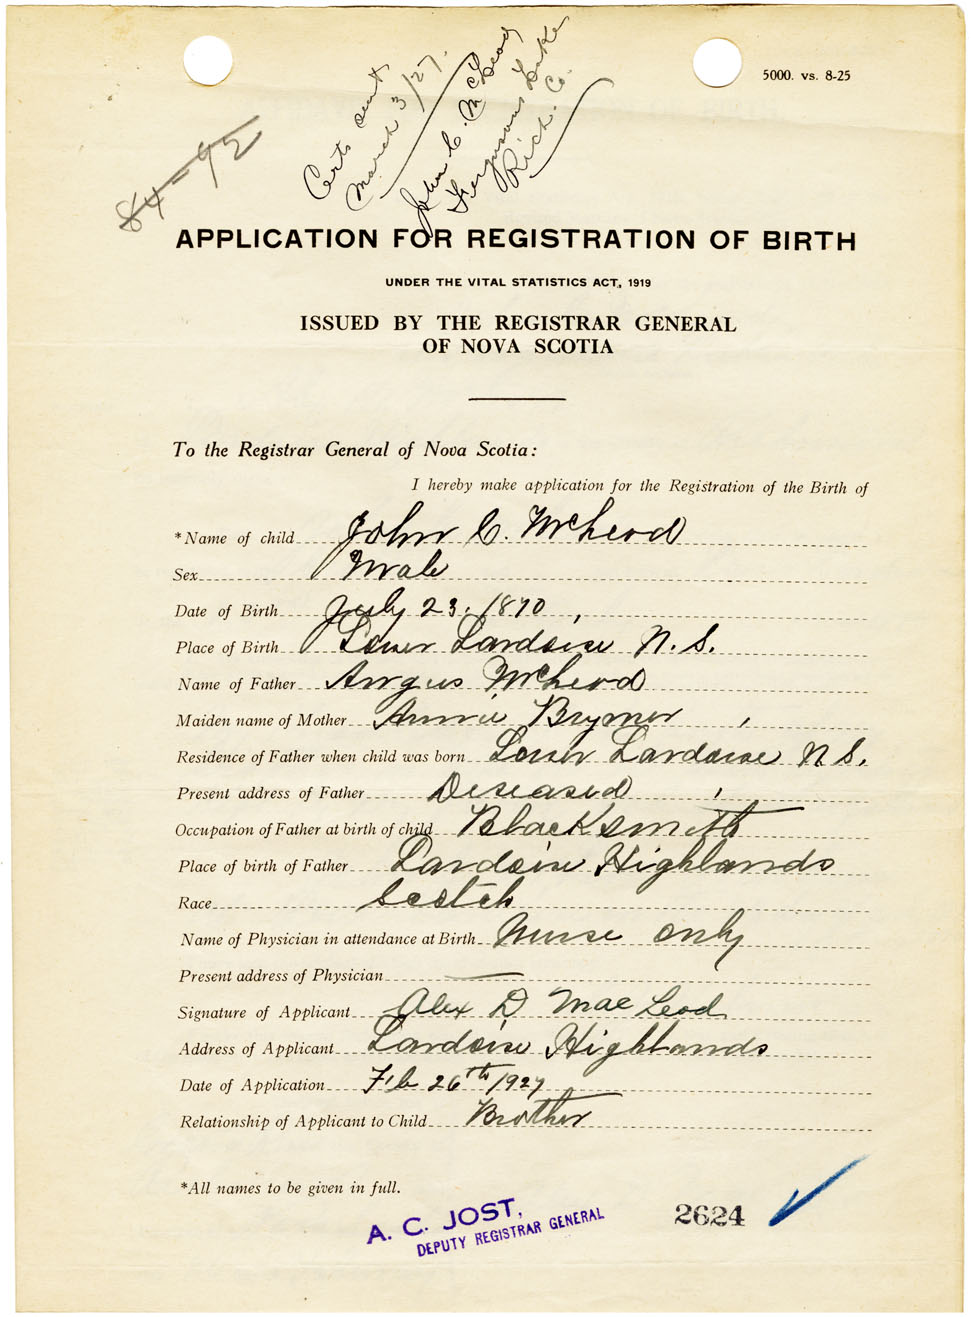 5000. vs. 8-25
Certs sent
March 3/27.
John C. McLeod
Fergusons Lake
Rich. Co.
84-92
APPLICATION FOR REGISTRATION OF BIRTH
UNDER THE VITAL STATISTICS ACT, 1919
ISSUED BY THE REGISTRAR GENERAL
OF NOVA SCOTIA
To the Registrar General of Nova Scotia:
I hereby make application for the Registration of the Birth of
*Name of child John C. McLeod
Sex Male
Date of Birth July 23. 1870
Place of Birth Lower Lardoise N.S.
Name of Father Angus McLeod
Maiden name of Mother Annie Brymer
Residence of Father when child was born Lower Lardoise N.S.
Present address of Father Deseased
Occupation of Father at birth of child Blacksmith
Place of birth of Father Lardoise Highlands
Race Scotch
Name of Physician in attendance at Birth Nurse only
Present address of Physician —
Signature of Applicant Alex D MacLeod
Address of Applicant Lardoise Highlands
Date of Application Feb 26th 1927
Relationship of Applicant to Child Brother
*All names to be given in full.
A. C. JOST,
DEPUTY REGISTRAR GENERAL
2624